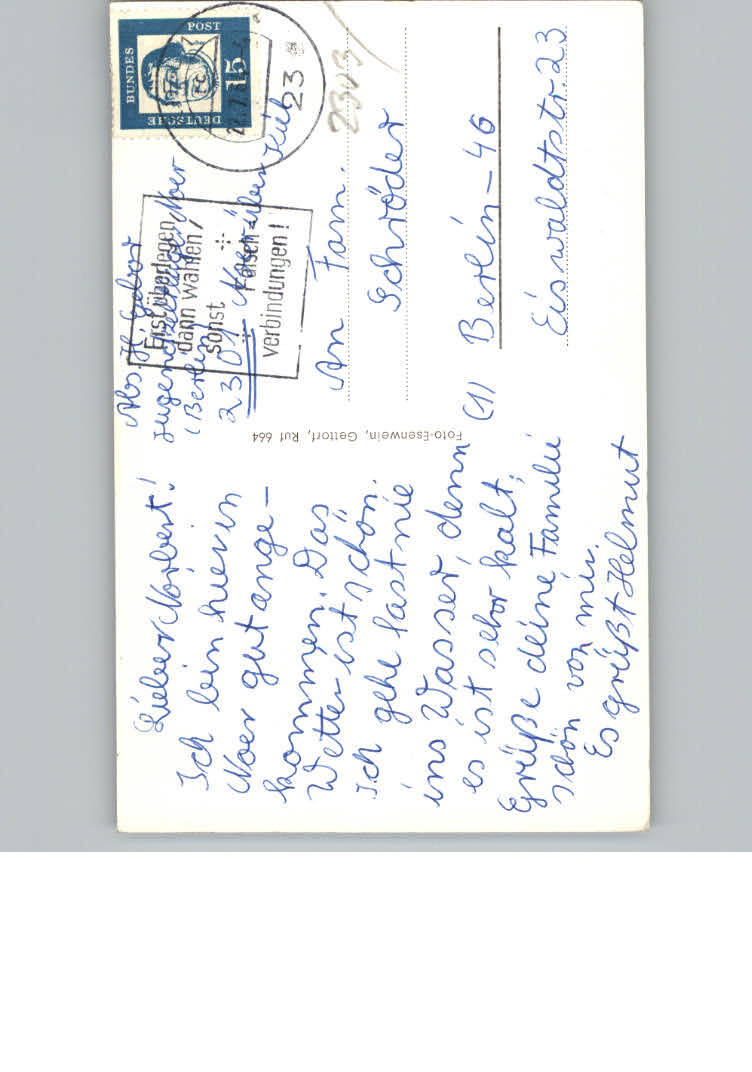 Lieber Norbert!
Ich bin hier in
Noer gut ange-
kommen. Das
Wetter ist schön.
Ich gehe fast nie
ins Wasser, denn
es ist sehr kalt;
Grüße deine Familie
schön von mir.
Es grüßt Helmut
Foto-Esenwein, Gettorf, Ruf 664
Abs. H.
Noer
(Berlin)
2301 Noer über Kiel
DEUTSCHE
BUNDES
POST
15
23
Erst überlegen,
dann wählen /
sonst
Falsch-
verbindungen!
2303
An Fam.
Schröder
(1) Berlin-46
Eiswaldtstr. 23